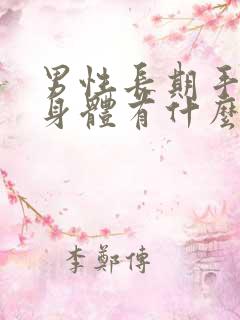 男性長期手
身體有什麼
李鄭傳